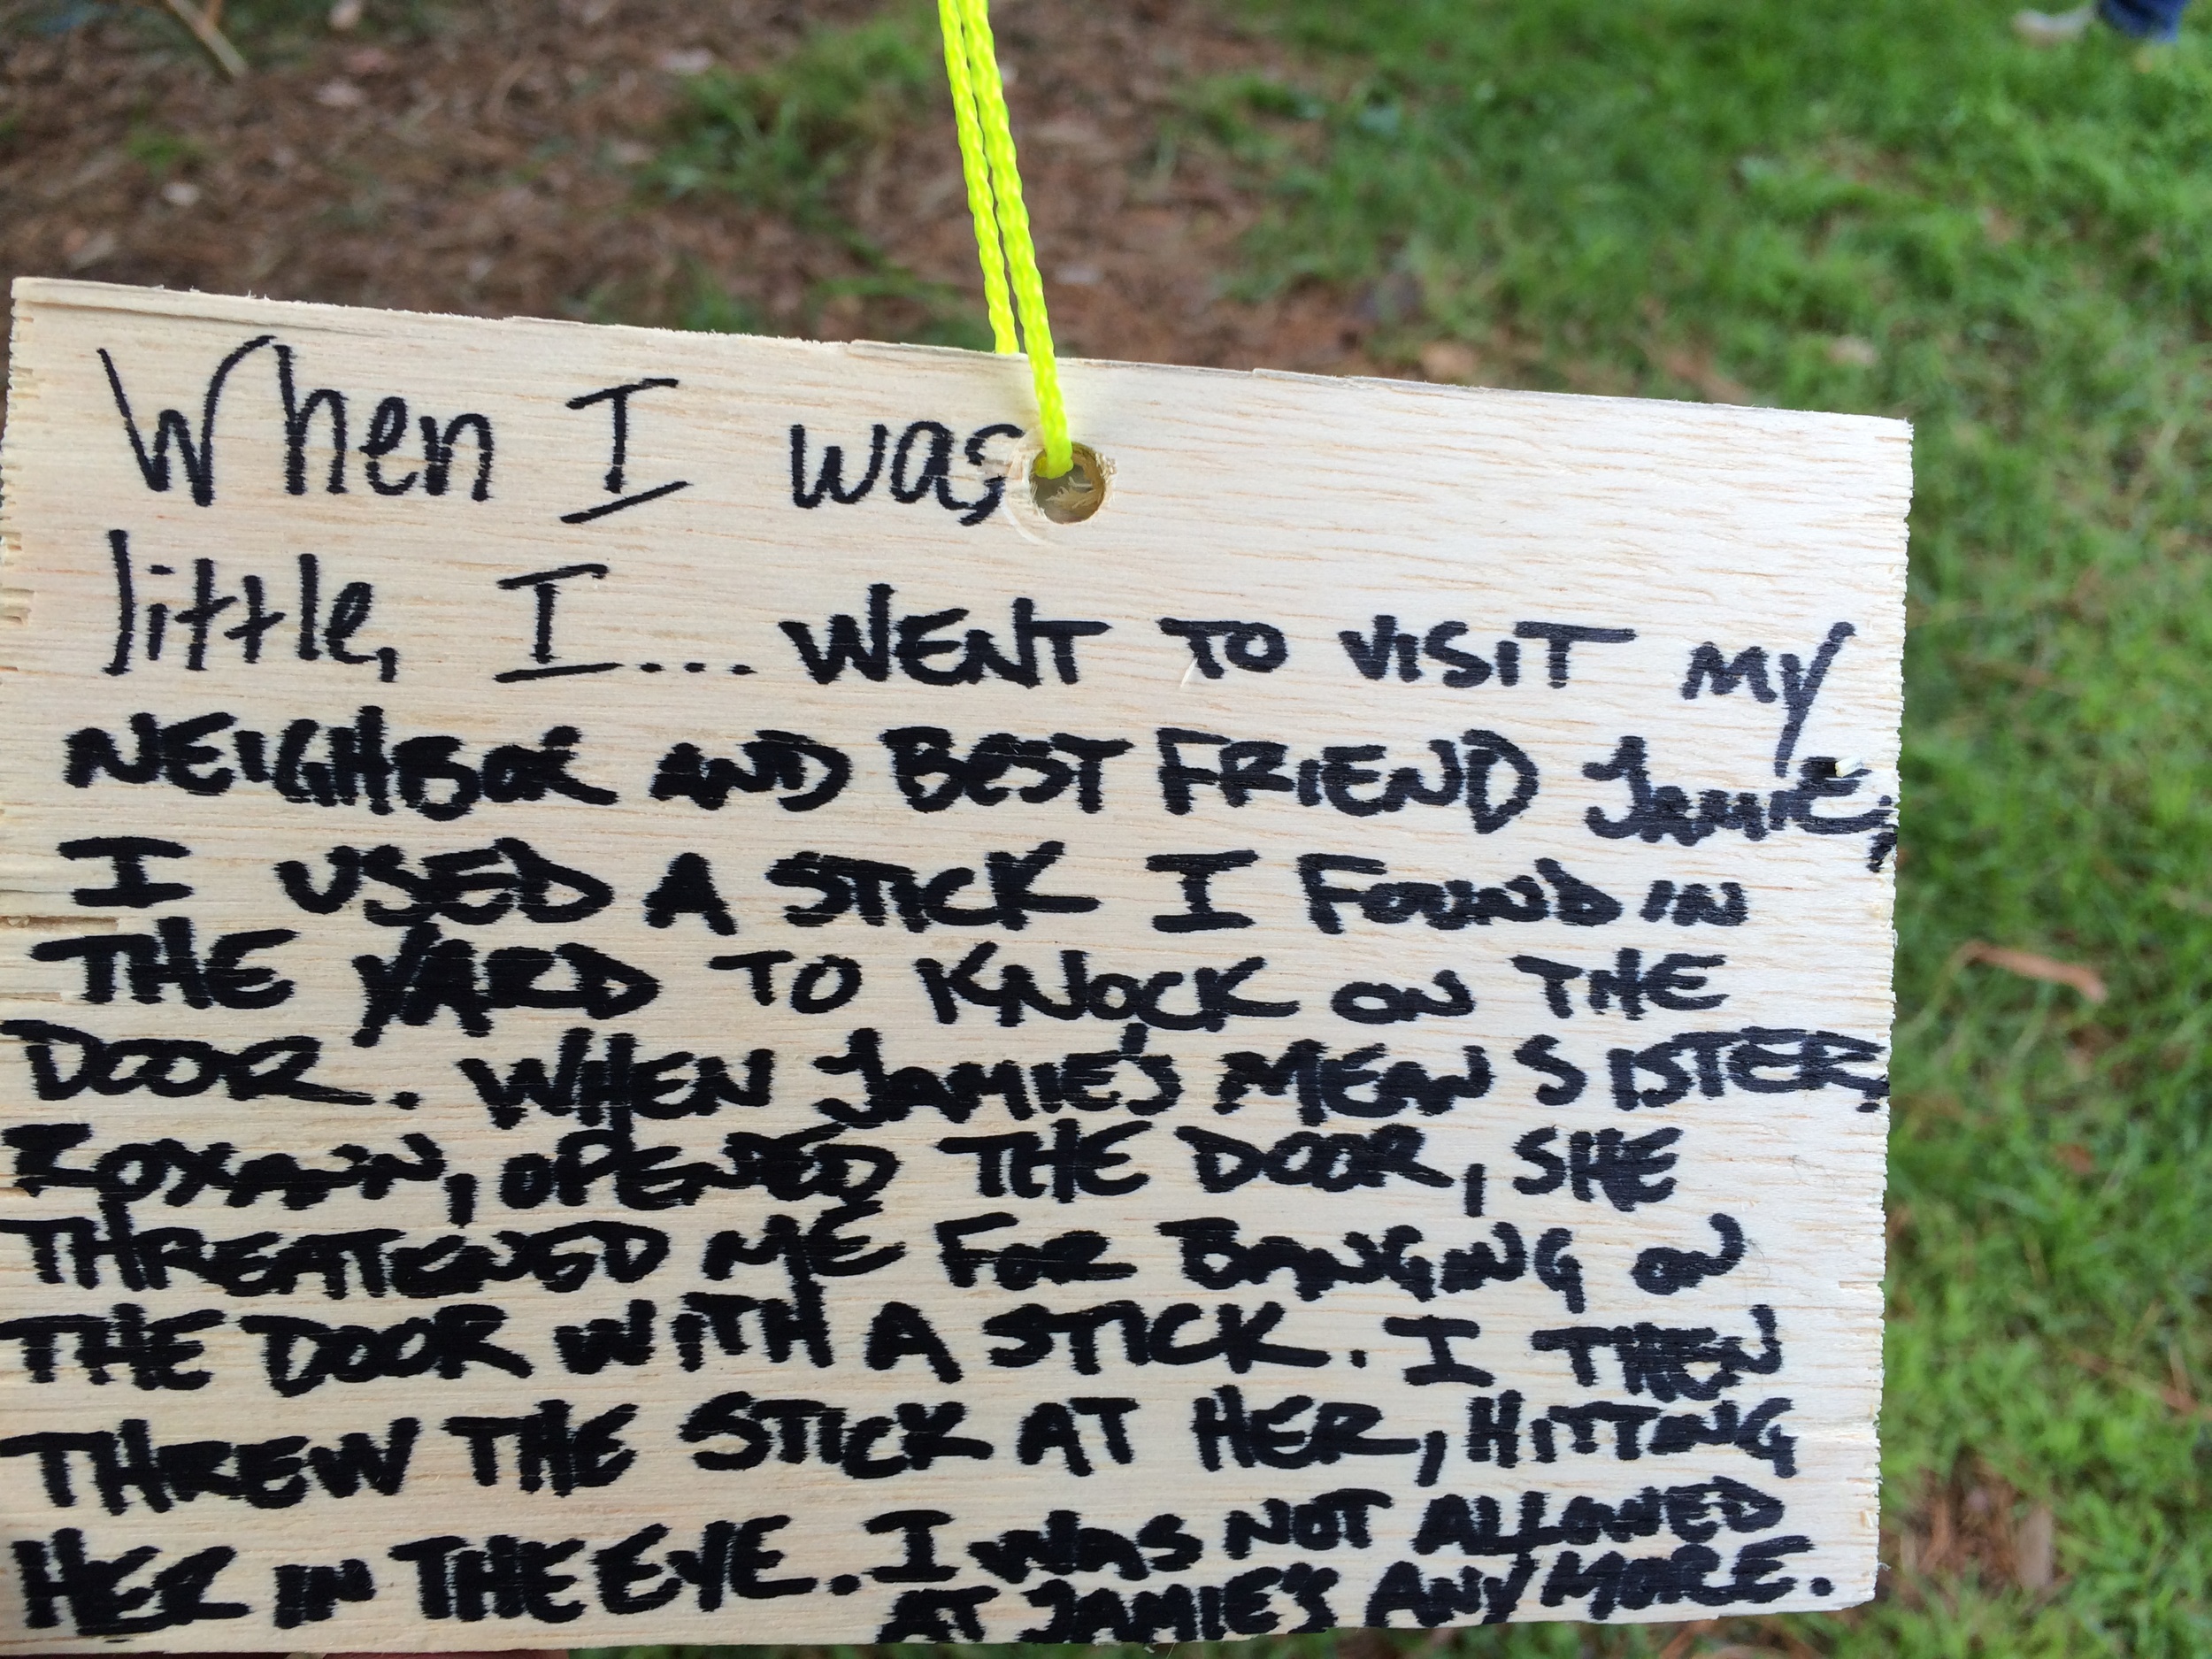 When I was
little, I... WENT TO VISIT MY
NEIGHBOR AND BEST FRIEND JAMIE,
I USED A STICK I FOUND IN
THE YARD TO KNOCK ON THE
DOOR. WHEN JAMIE'S MEAN SISTER,
ROXANN, OPENED THE DOOR, SHE
THREATENED ME FOR BANGING ON
THE DOOR WITH A STICK. I THEN
THREW THE STICK AT HER, HITTING
HER IN THE EYE. I WAS NOT ALLOWED
AT JAMIE'S ANYMORE.